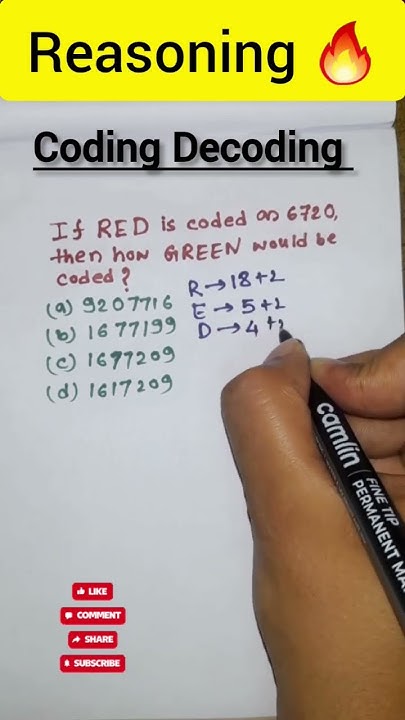 Reasoning 🔥
Coding Decoding
If RED is coded as 6720,
then how GREEN would be
coded?
(a) 9207716
(b) 1677199
(c) 1677209
(d) 1617209
R→18+2
E→5+2
D→4+2
camlin
FINE TIP
PERMANENT MA
LIKE
COMMENT
SHARE
SUBSCRIBE